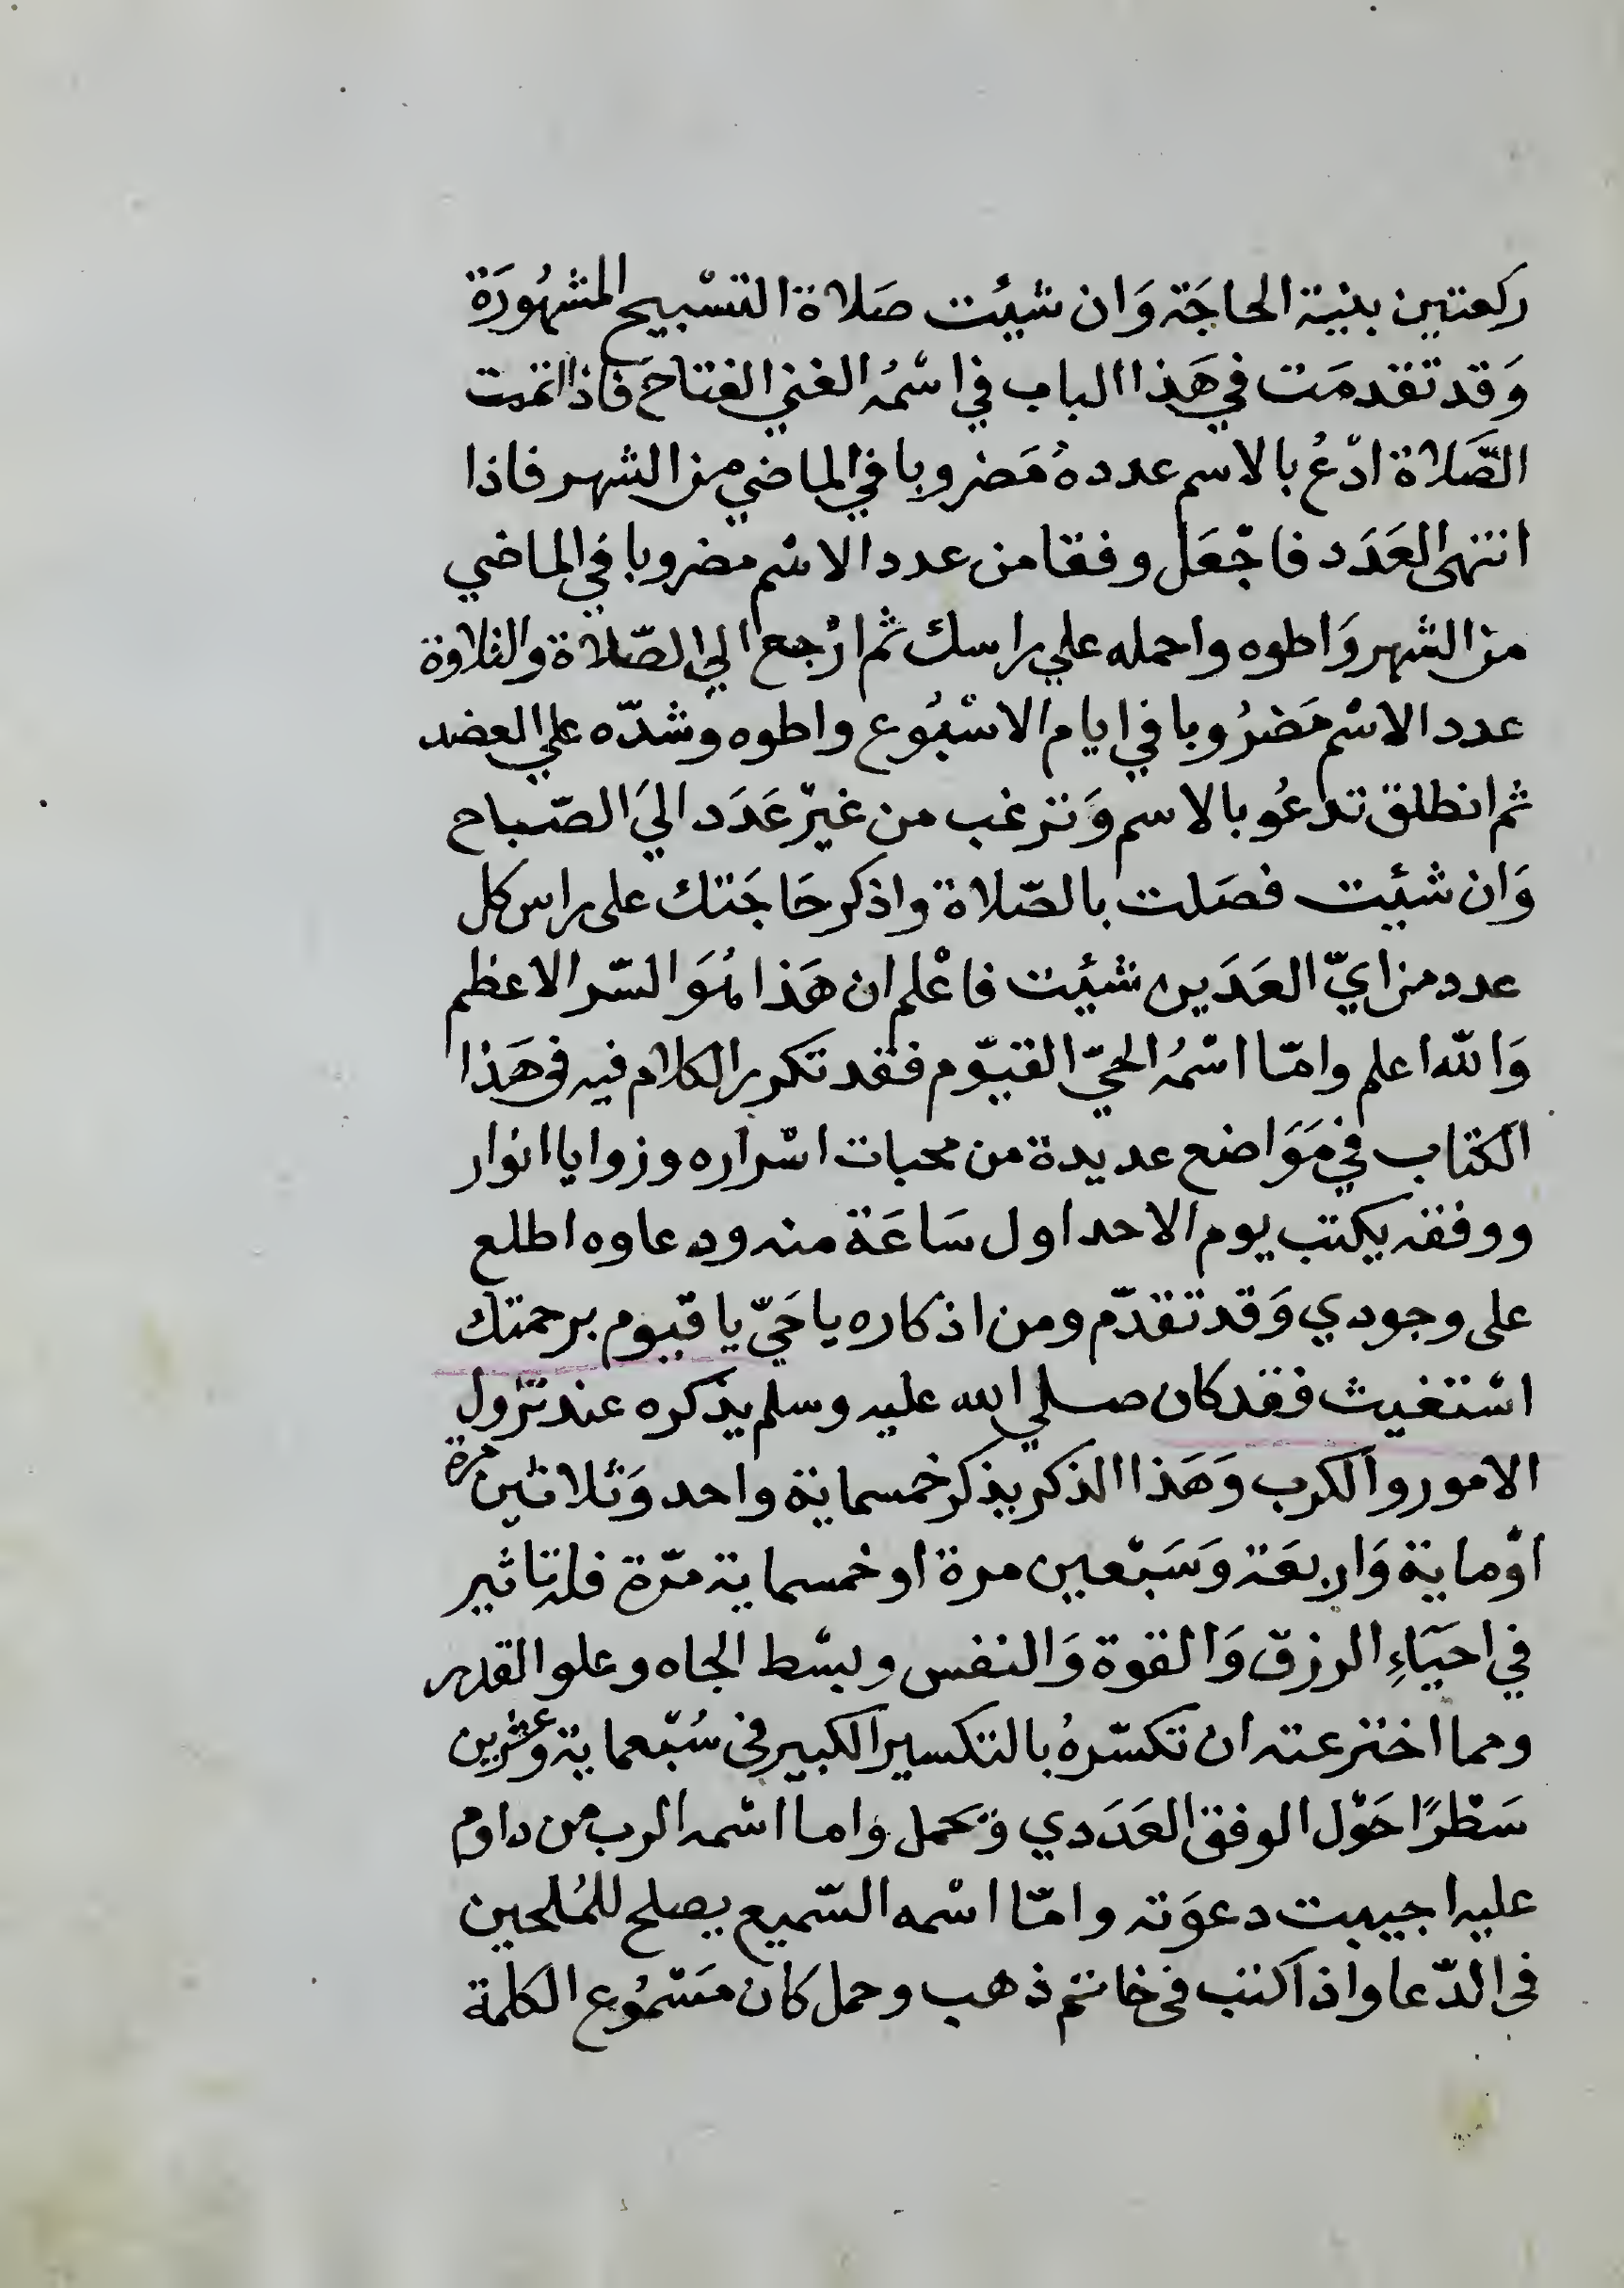 ركعتين بنية الحاجَة وَان شيئت صَلاة التسْبيح المشهُورَة
وَقد تقدمَت في هَذا الباب في اسْمُه الغني الفتاح فاذا اتمت
الصَّلاة ادْعُ بالاسم عددهُ مَضروبا في الماضي من الشهر فاذا
انتهى العَدَد فاجْعَل وفقا من عدد الاسْم مضروبا في الماضي
من الشهر وَاطوه واحمله علي راسك ثم ارْجع الي الصّلاة والتلاوة
عدد الاسْم مَضرُوبا في ايام الاسْبُوع واطوه وشدّه علي العضد
ثم انطلق تدعُو بالاسم وَترغب من غيْر عَدَد اليَ الصّباح
وَان شيئت فصَلت بالصّلاة واذكر حَاجَتك على راس كل
عدد من ايّ العَدَين شيئت فاعْلم ان هَذا هُوَ السّر الاعظم
وَالله اعلم وامّا اسْمُه الحيّ القيّوم فقد تكرر الكلام فيه في هَذا
الكتاب في مَوَاضع عديدة من مخبات اسْراره وزوايا انوار
ووفقه يكتب يوم الاحد اول سَاعَة منه ودعاوه اطلع
على وجودي وَقد تقدّم ومن اذكاره يا حَيّ يا قيوم برحمتك
اسْتغيث فقد كان صلي الله عليه وسلم يذكره عند نزول
الامور والكرب وَهَذا الذكر يذكر خمسماية واحد وَثلاثين مرة
اوْ ماية وَاربعَة وَسَبْعين مرة او خمسماية مرّة فله تاثير
في احيَاءِ الرزق وَالقوة وَالنفس وبسْط الجاه وعلو القدر
ومما اخترعته ان تكسّرهُ بالتكسير الكبير في سُبْعماية وعشرين
سَطْرًا حَوْل الوفق العَدَدي وَتحمل واما اسْمه الرب من داوم
عليه اجيبت دعوَته وامّا اسْمه السّميع يصلح للمُلحين
في الدّعا واذا كتب في خاتم ذهب وحمل كان مَسْمُوع الكلمة